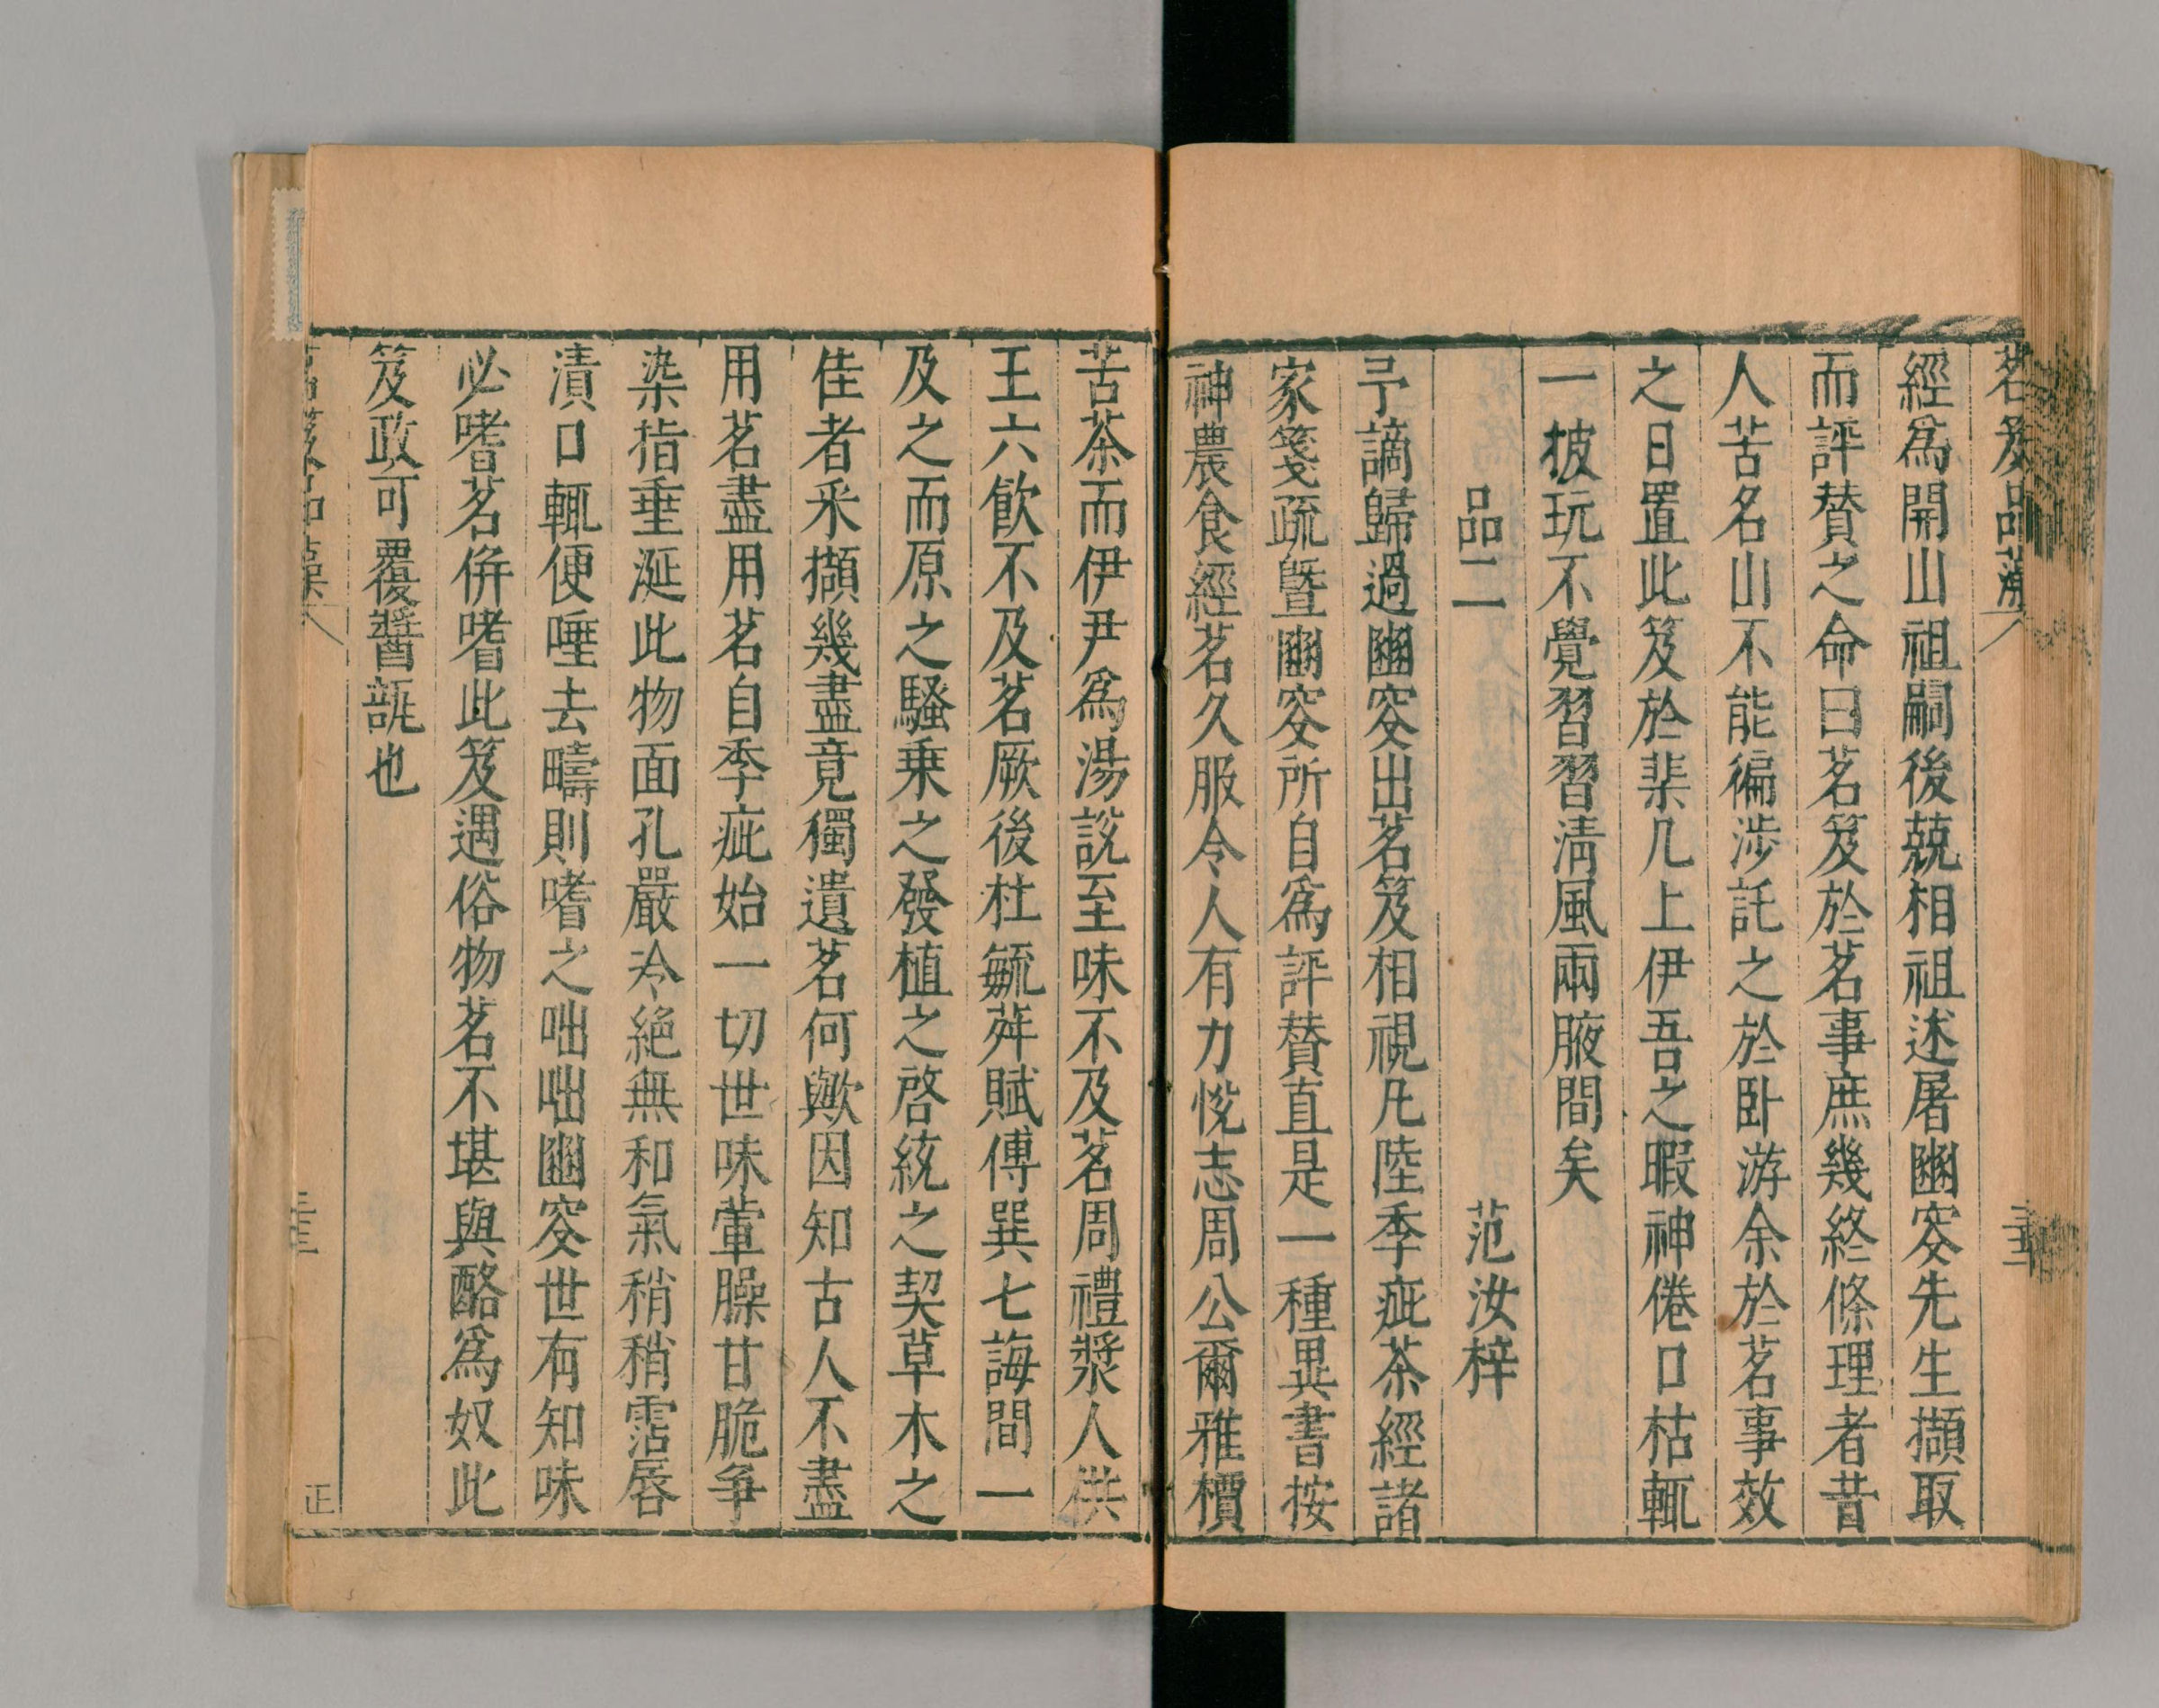 茗笈品藻
經爲開山祖嗣後兢相祖述屠豳叟先生擷取
而評賛之命曰茗笈於茗事庶幾終條理者昔
人苦名山不能徧涉託之於卧游余於茗事效
之日置此笈於棐几上伊吾之暇神倦口枯輒
一披玩不覺習習淸風兩腋間矣
品二 范汝梓
予謫歸過豳叟出茗笈相視凡陸季疵茶經諸
家箋疏曁豳叟所自爲評賛直是一種異書按
神農食經茗久服令人有力悅志周公爾雅檟
苦茶而伊尹爲湯説至味不及茗周禮漿人供
王六飮不及茗厥後杜毓荈賦傅巽七誨間一
及之而原之騷乗之發植之啓統之契草木之
佳者采擷幾盡竟獨遺茗何歟因知古人不盡
用茗盡用茗自季疵始一切世味葷臊甘脆爭
染指垂涎此物面孔嚴冷絶無和氣稍稍霑唇
漬口輒便唾去疇則嗜之咄咄豳叟世有知味
必嗜茗倂嗜此笈遇俗物茗不堪與酪爲奴此
笈政可覆醬瓿也